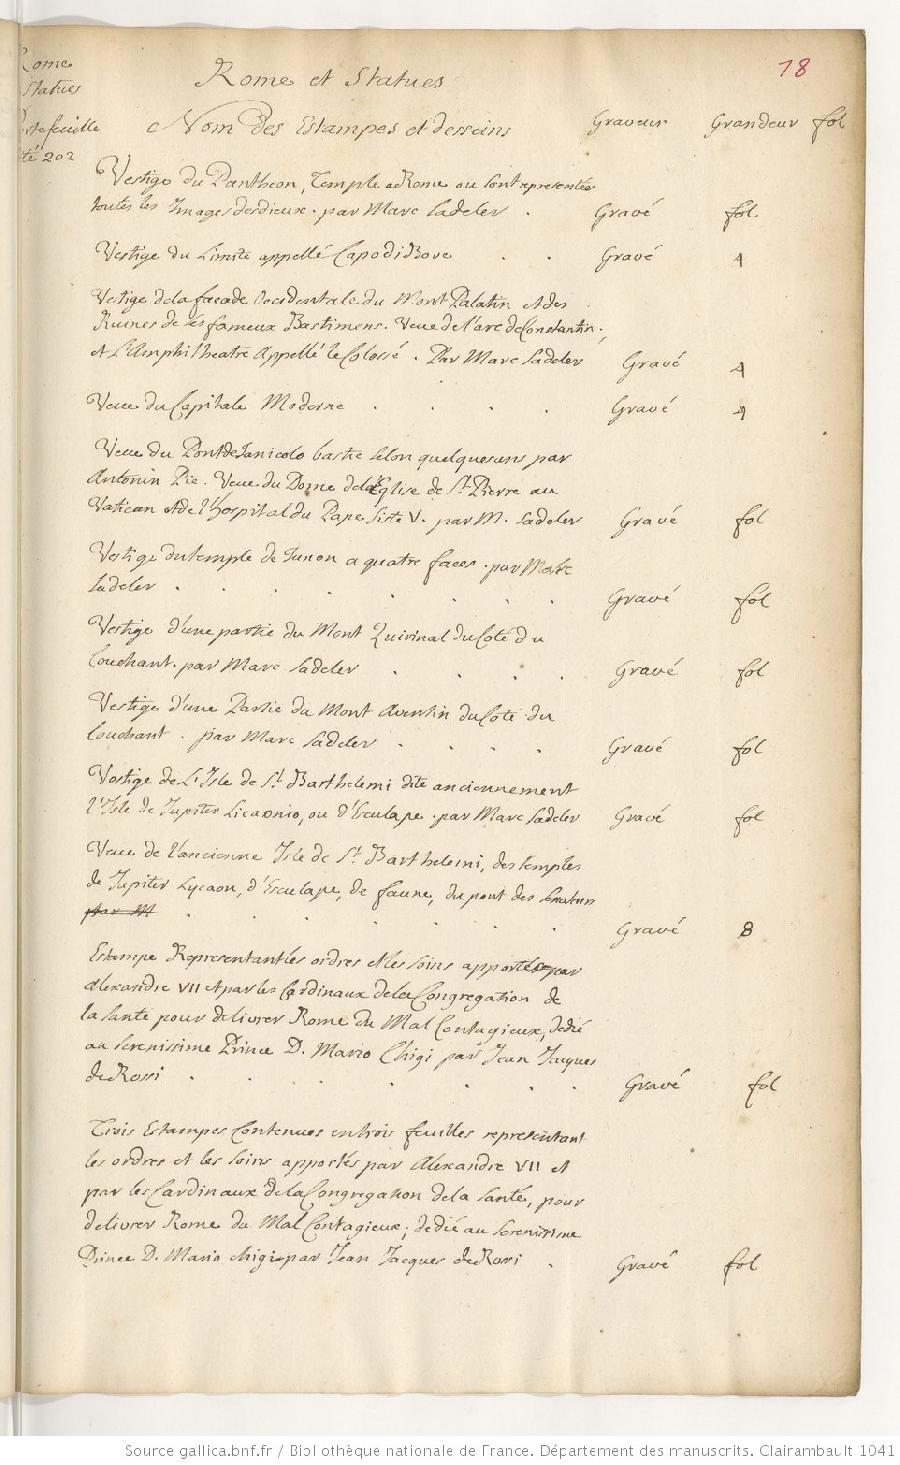 Rome
Statues
Rome et Statues
18
Portefeuille
Coté 202
Nom des Estampes et desseins
Graveur
Grandeur
fol
Vestige du Pantheon, Temple a Rome ou sont representés
toutes les Images des dieux. par Marc Sadeler .
Gravé
fol.
Vestige du Limite appellé Capo di Bove . .
Gravé
4
Vestige de la facade Occidentale du Mont Palatin et des
Ruines de ses fameux Bastimens. Veue de l'arc de Constantin,
et L'Amphitheatre Appellé le Colossé. Par Marc Sadeler
Gravé
4
Veue du Capitole Moderne . . . .
Gravé
4
Veue du Pont de Janicolo bastie selon quelquesuns par
Antonin Pie. Veue du Dome de l'Eglise de St. Pierre au
Vatican et de l'hospital du Pape Sixte V. par M. Sadeler
Gravé
fol
Vestige du temple de Junon a quatre faces. par Marc
Sadeler . . . . . . .
Gravé
fol
Vestige d'une partie du Mont Quirinal du Coté du
Couchant. par Marc Sadeler . . . .
Gravé
fol
Vestige d'une Partie du Mont Aventin du Coté du
Couchant. par Marc Sadeler . . . .
Gravé
fol
Vestige de L'Isle de St. Barthelemi dite anciennement
l'Isle de Jupiter Licaonio, ou d'Esculape. par Marc Sadeler
Gravé
fol
Veue de l'ancienne Isle de St. Barthelemi, des temples
de Jupiter Lycaon, d'Esculape, de faune, du pont des
par M . . . . . .
Gravé
8
Estampe Representant les ordres et les soins apportés par
Alexandre VII et par les Cardinaux de la Congregation de
la santé pour delivrer Rome du Mal Contagieux, dedié
au Serenissime Prince D. Mario Chigi par Jean Jacques
de Rossi . . . . . . .
Gravé
fol
Trois Estampes Contenues en trois feuilles representant
les ordres et les soins apportés par Alexandre VII et
par les Cardinaux de la Congregation de la santé, pour
delivrer Rome du Mal Contagieux; dedié au Serenissime
Prince D. Mario Chigi par Jean Jacques de Rossi .
Gravé
fol
Source gallica.bnf.fr / Bibliothèque nationale de France. Département des manuscrits. Clairambault 1041